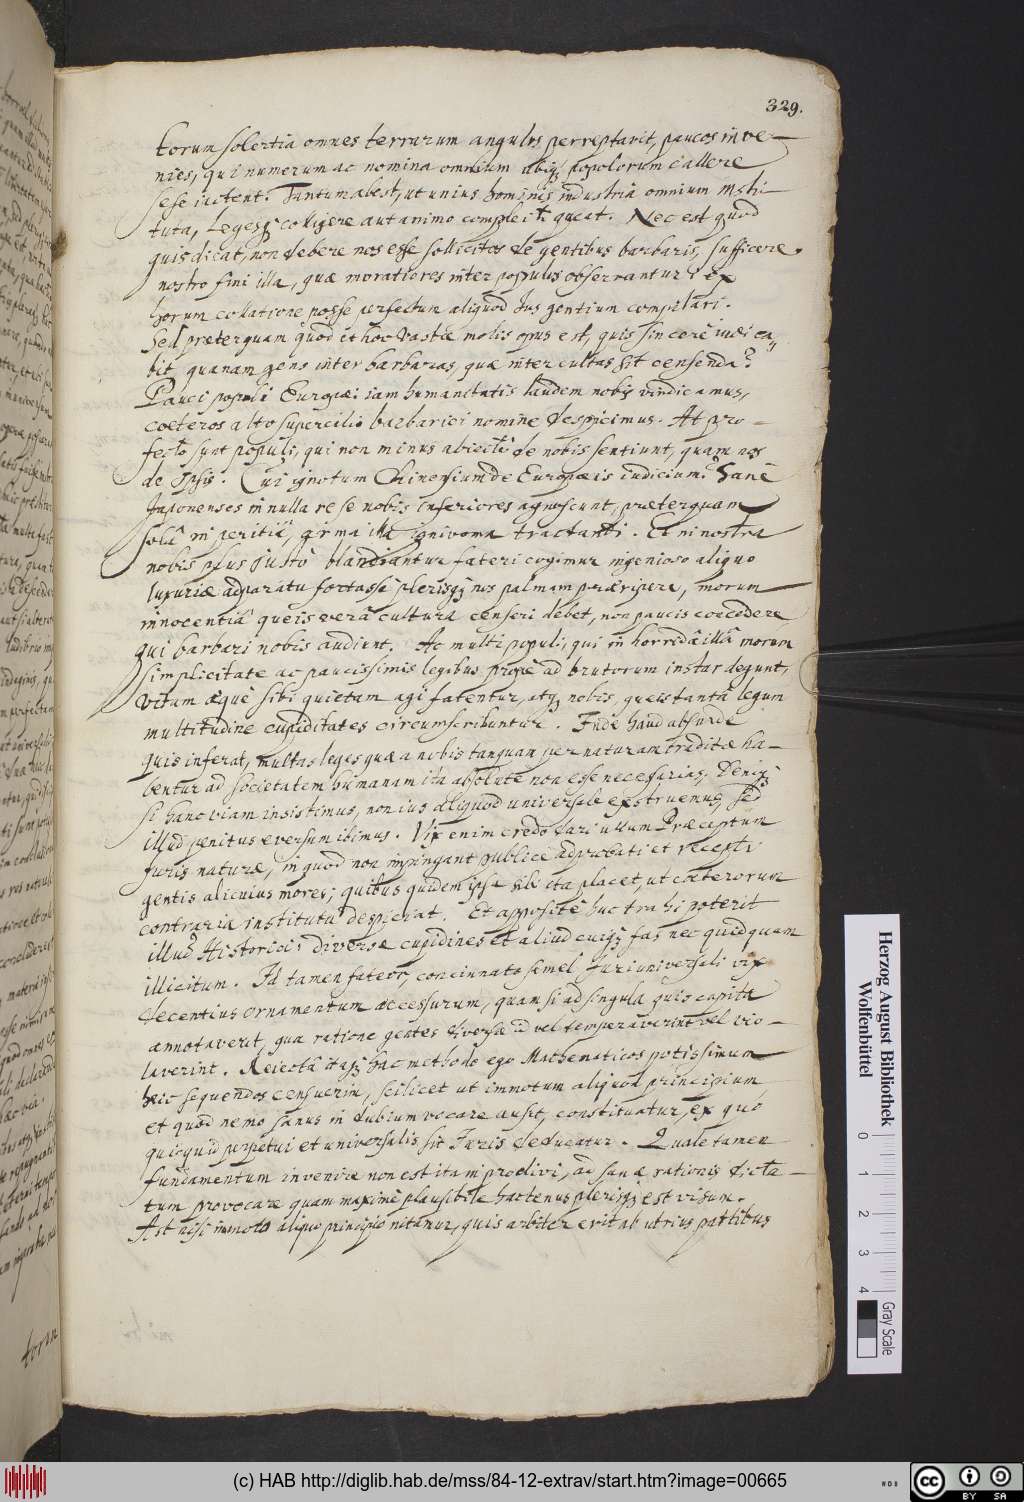 329.
torum solertia omnes terrarum angulos perreptavit, paucos inve-
nies, qui numerum ac nomina omnium ubiq; populorum callere
sese iactent. Tantum abest, ut unius hominis industria omnium insti-
tuta, Legesq; colligere aut animo complecti queat. Nec est quod
quis dicat, non debere nos esse sollicitos de gentibus barbaris, sufficere
nostro fini illa, quæ moratiores inter populos observantur; ex
horum collatione posse perfectum aliquod Jus gentium compilari.
Sed præterquam quod et hoc vastæ molis opus est, quis sincerè iudica-
bit, quænam gens inter barbaras, quæ inter cultas sit censenda?
Pauci populi Europæi iam humanitatis laudem nobis vindicamus,
cæteros alto supercilio barbarici nomine despicimus. At pro-
fecto sunt populi, qui non minus abiectè de nobis sentiunt, quam nos
de Ipsis. Cui ignotum Chinensium de Europæis iudicium? Sanè
Japonenses in nulla re se nobis inferiores agnoscunt, præterquam
solâ in peritiâ, qua arma illa ignivoma tractanti. Et ni nostra
nobis plus justo blandiantur fateri cogimur ingenioso aliquo
luxuriæ adparatu fortassè plerisq; nos palmam præripere, morum
innocentiâ queis vera cultura censeri debet, non paucis concedere
qui barbari nobis audiunt. Ac multi populi, qui in horridâ illâ morum
simplicitate ac paucissimis legibus propè ad brutorum instar degunt,
vitam æquè sibi quietam agi fatentur, atq; nobis, queis tantâ legum
multitudine cupiditates circumscribuntur. Unde haud absurdè
quis inferat, multas leges quæ a nobis tanquam per naturam traditæ ha-
bentur ad societatem humanam ita absolutè non esse necessarias. Deniq;
si hanc viam insistimus, non ius aliquod universale exstruemus, sed
illud penitus eversum ibimus. Vix enim credo dari ullum Præceptum
Juris naturæ, in quod non impingant publicè adprobati et recepti
gentis alicuius mores; quibus quidem ipsa sibi ita placet, ut cæterorum
contraria instituta despiciat. Et appositè huc trahi poterit
illud Historici: diversæ cupidines et aliud cuiq; fas nec quidquam
illicitum. Id tamen fateor, concinnato semel Juri universali vix
decentius ornamentum accessurum, quam si ad singula quis capita
annotaverit, qua ratione gentes diversæ id vel temperaverint vel vio-
laverint. Reiectâ itaq; hac methodo ego Mathematicos potissimum
hic sequendos censuerim, scilicet ut immotum aliquod principium
et quod nemo sanus in dubium vocare ausit, constituatur, ex quo
quicquid perpetui et universalis sit Juris deducatur. Quale tamen
fundamentum invenire non est ita in proclivi, ad sanæ rationis dicta-
tum provocare quam maximè plausibile hactenus plerisq; est visum.
Ast nisi immoto aliquo principio nitamur, quis arbiter erit ab utrius partibus
toru
Herzog August Bibliothek
Wolfenbüttel
0 1 2 3 4
Gray Scale
(c) HAB http://diglib.hab.de/mss/84-12-extrav/start.htm?image=00665
cc BY SA